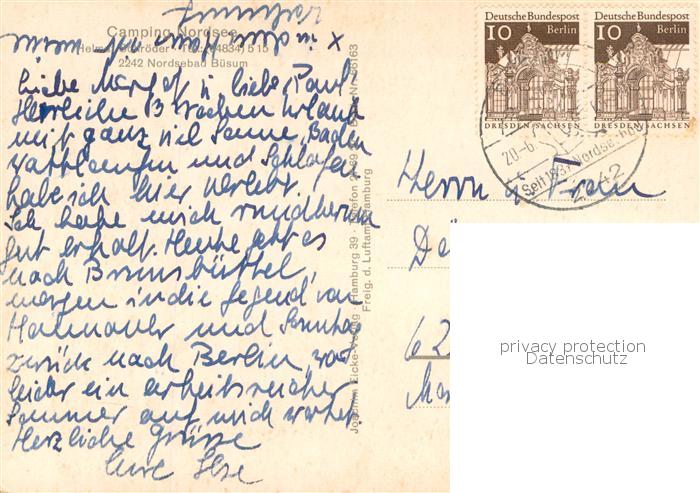 Camping Nordsee
Helmut Schröder · Tel. (04834) 515
2242 Nordseebad Büsum
Liebe Margot u. lieber Paul
Herrliche 3 Wochen Urlaub
mit ganz viel Sonne, Baden
wattlaufen und Schlafen
habe ich hier verlebt.
Ich habe mich rundherum
gut erholt. Heute geht es
nach Brunsbüttel,
morgen in die Gegend von
Hannover und Sonntag
zurück nach Berlin, wo
leider ein arbeitsreicher
Sommer auf mich wartet.
Herzliche Grüsse
Eure Ilse
Joachim Eicke-Verlag · Hamburg 39 · Telefon
Freig. d. Luftamt Hamburg
Deutsche Bundespost
10 Berlin
DRESDEN/SACHSEN
Deutsche Bundespost
10 Berlin
DRESDEN/SACHSEN
20.-6.
Seit 1837 Nordseeheilbad
2242
Herrn u. Frau
62
privacy protection
Datenschutz